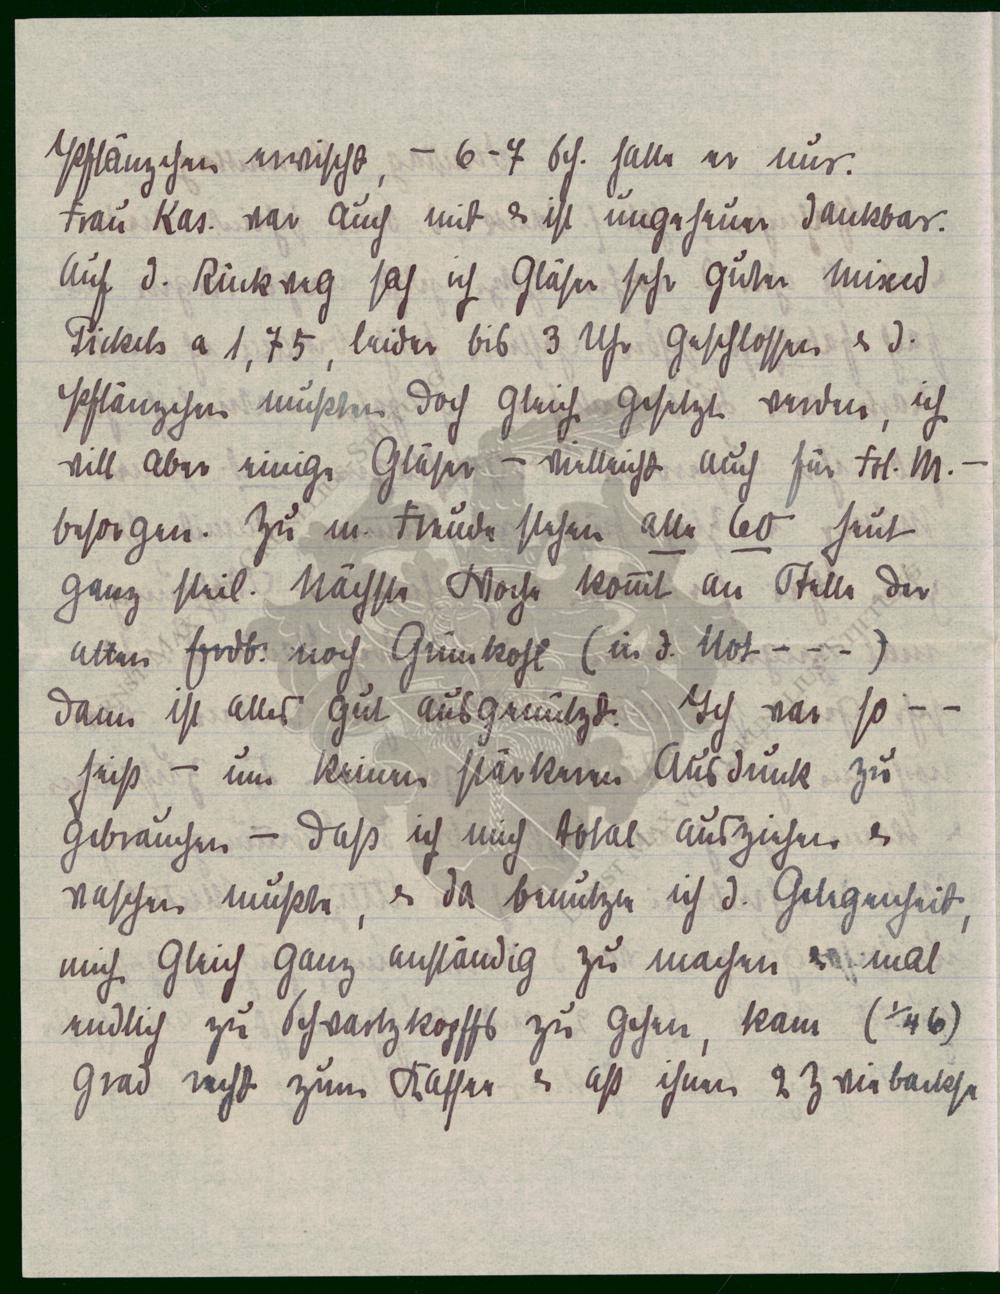 Pflänzchen erwischt, – 6-7 Sch. hatte er nur.
Frau Kas. war auch mit & ist ungeheuer dankbar.
Auf d. Rückweg sah ich Gläser sehr guter Mixed
Pickels a 1,75, leider bis 3 Uhr geschlossen & d.
Pflänzchen mußten doch gleich gesetzt werden, ich
will aber einige Gläser – vielleicht auch für Frl. M. –
besorgen. Zu m. Freude stehen alle 60 heut
ganz steil. Nächste Woche kom̄t an Stelle der
alten Erdb. noch Grünkohl (in d. Not - - - )
dann ist alles gut ausgenützt. Ich war so - -
heiß – um keinen stärkeren Ausdruck zu
gebrauchen – daß ich mich total ausziehen &
waschen mußte, & da benutzte ich d. Gelegenheit,
mich gleich ganz anständig zu machen & mal
endlich zu Schwartzkopffs zu gehen, kam (1/4 6)
grad recht zum Kaffee & aß ihnen 2 Zwiebäckse